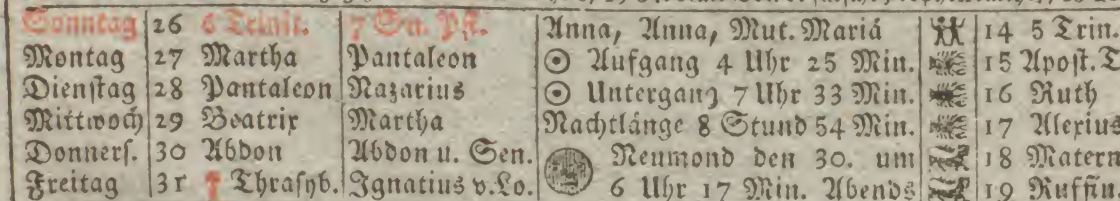 Sonntag 26 6 Trinit. 7 Sn. Pf. Anna, Anna, Mut. Mariä 14 5 Trin.
Montag 27 Martha Pantaleon ☉ Aufgang 4 Uhr 25 Min. 15 Apost. T
Dienstag 28 Pantaleon Nazarius ☉ Untergang 7 Uhr 33 Min. 16 Ruth
Mittwoch 29 Beatrix Martha Nachtlänge 8 Stund 54 Min. 17 Alexius
Donners. 30 Abdon Abdon u. Sen. Neumond den 30. um 18 Matern
Freitag 31 † Thrasyb. Ignatius v. Lo. 6 Uhr 17 Min. Abends 19 Ruffin.